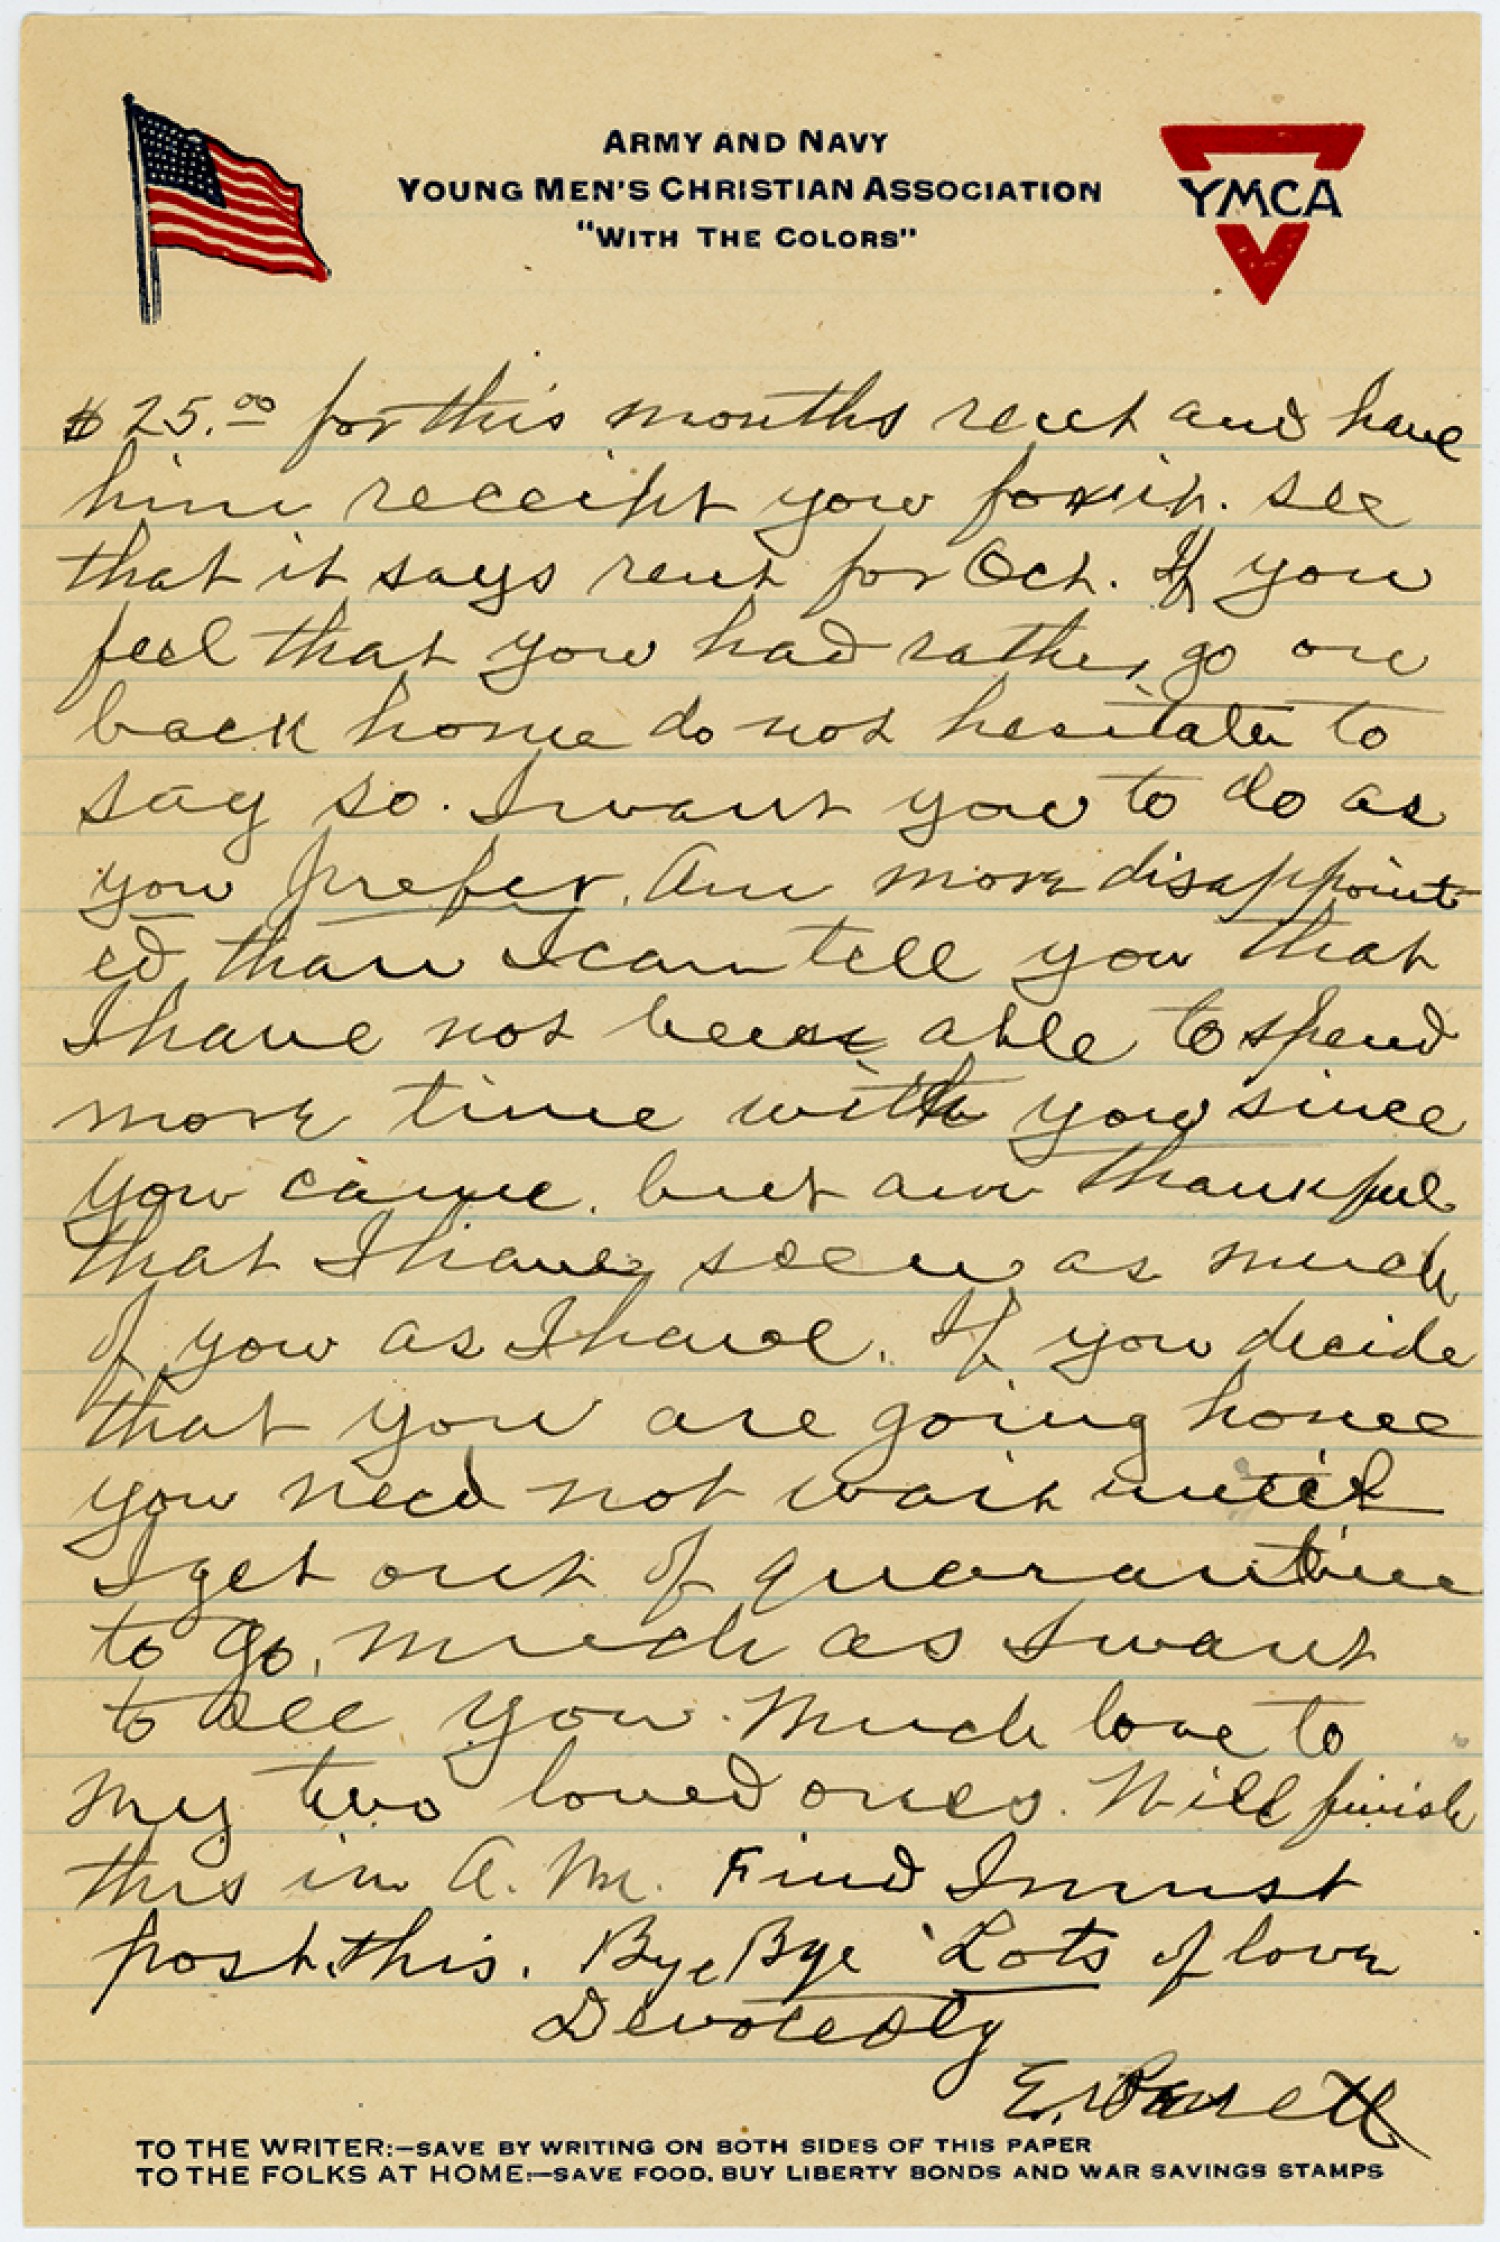 ARMY AND NAVY
YOUNG MEN'S CHRISTIAN ASSOCIATION
"WITH THE COLORS"
YMCA
$25.00 for this months rent and have
him receipt you for it. See
that it says rent for Oct. If you
feel that you had rather go on
back home do not hesitate to
say so. I want you to do as
you prefer. Am more disappoint-
ed than I can tell you that
I have not been able to spend
more time with you since
you came. but am thankful
that I have seen as much
of you as I have. If you decide
that you are going home
you need not wait until
I get out of quarantine
to go, much as I want
to see you. Much love to
my two loved ones. Will finish
this in A.M. Find I must
post this. Bye Bye Lots of love
Devotedly
E.
TO THE WRITER:—SAVE BY WRITING ON BOTH SIDES OF THIS PAPER
TO THE FOLKS AT HOME:—SAVE FOOD, BUY LIBERTY BONDS AND WAR SAVINGS STAMPS